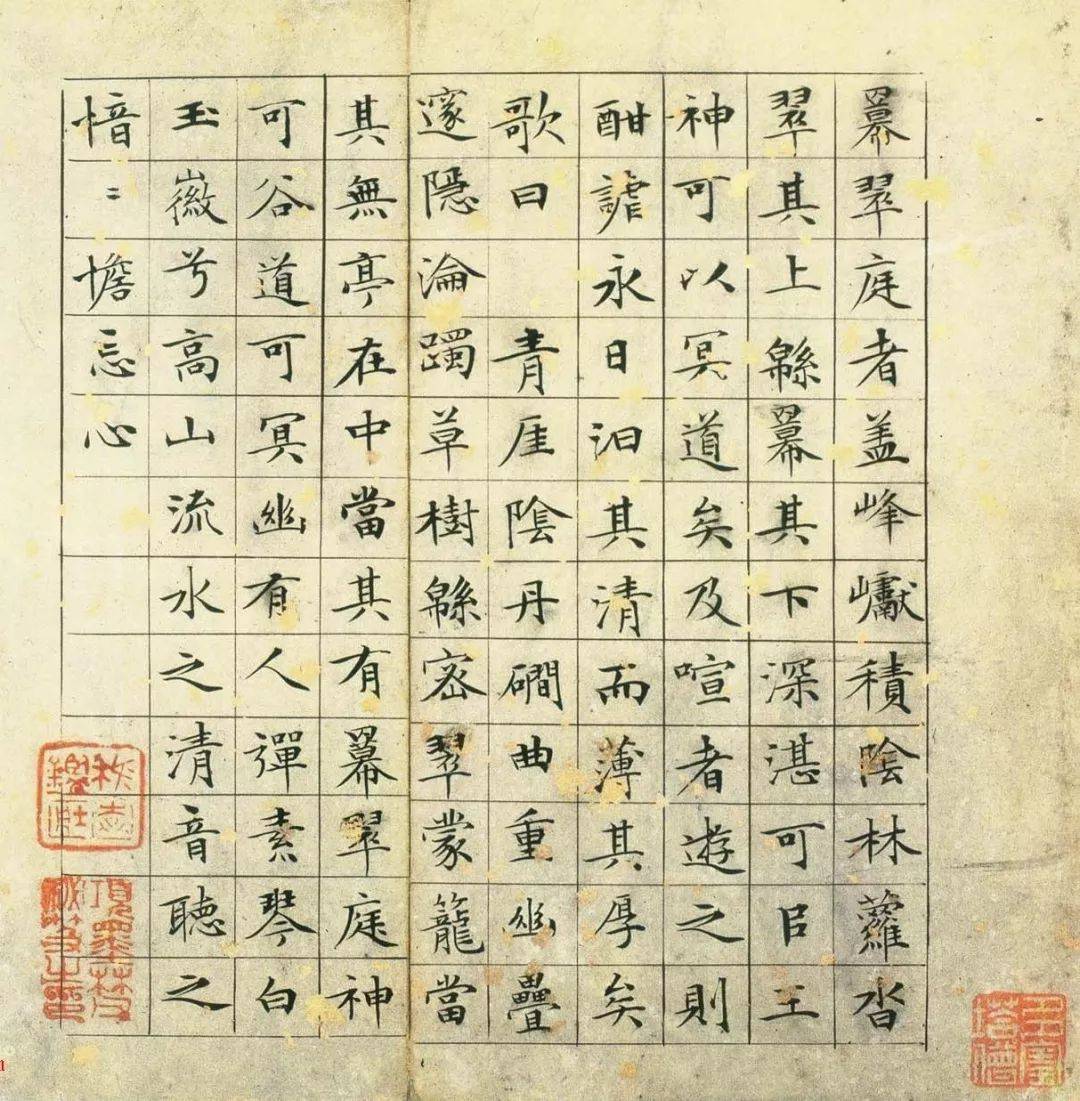 羃翠庭者盖峰巘積陰林蘿沓
翠其上緜羃其下深湛可㠯王
神可以冥道矣及喧者遊之則
酣謔永日汩其清而薄其厚矣
歌曰　青厓陰丹磵曲重幽疊
邃隱淪躅草樹緜密翠蒙籠當
其無亭在中當其有羃翠庭神
可谷道可冥幽有人彈素琴白
玉徽兮高山流水之清音聽之
愔〻憺忘心
項墨林父秘笈之印